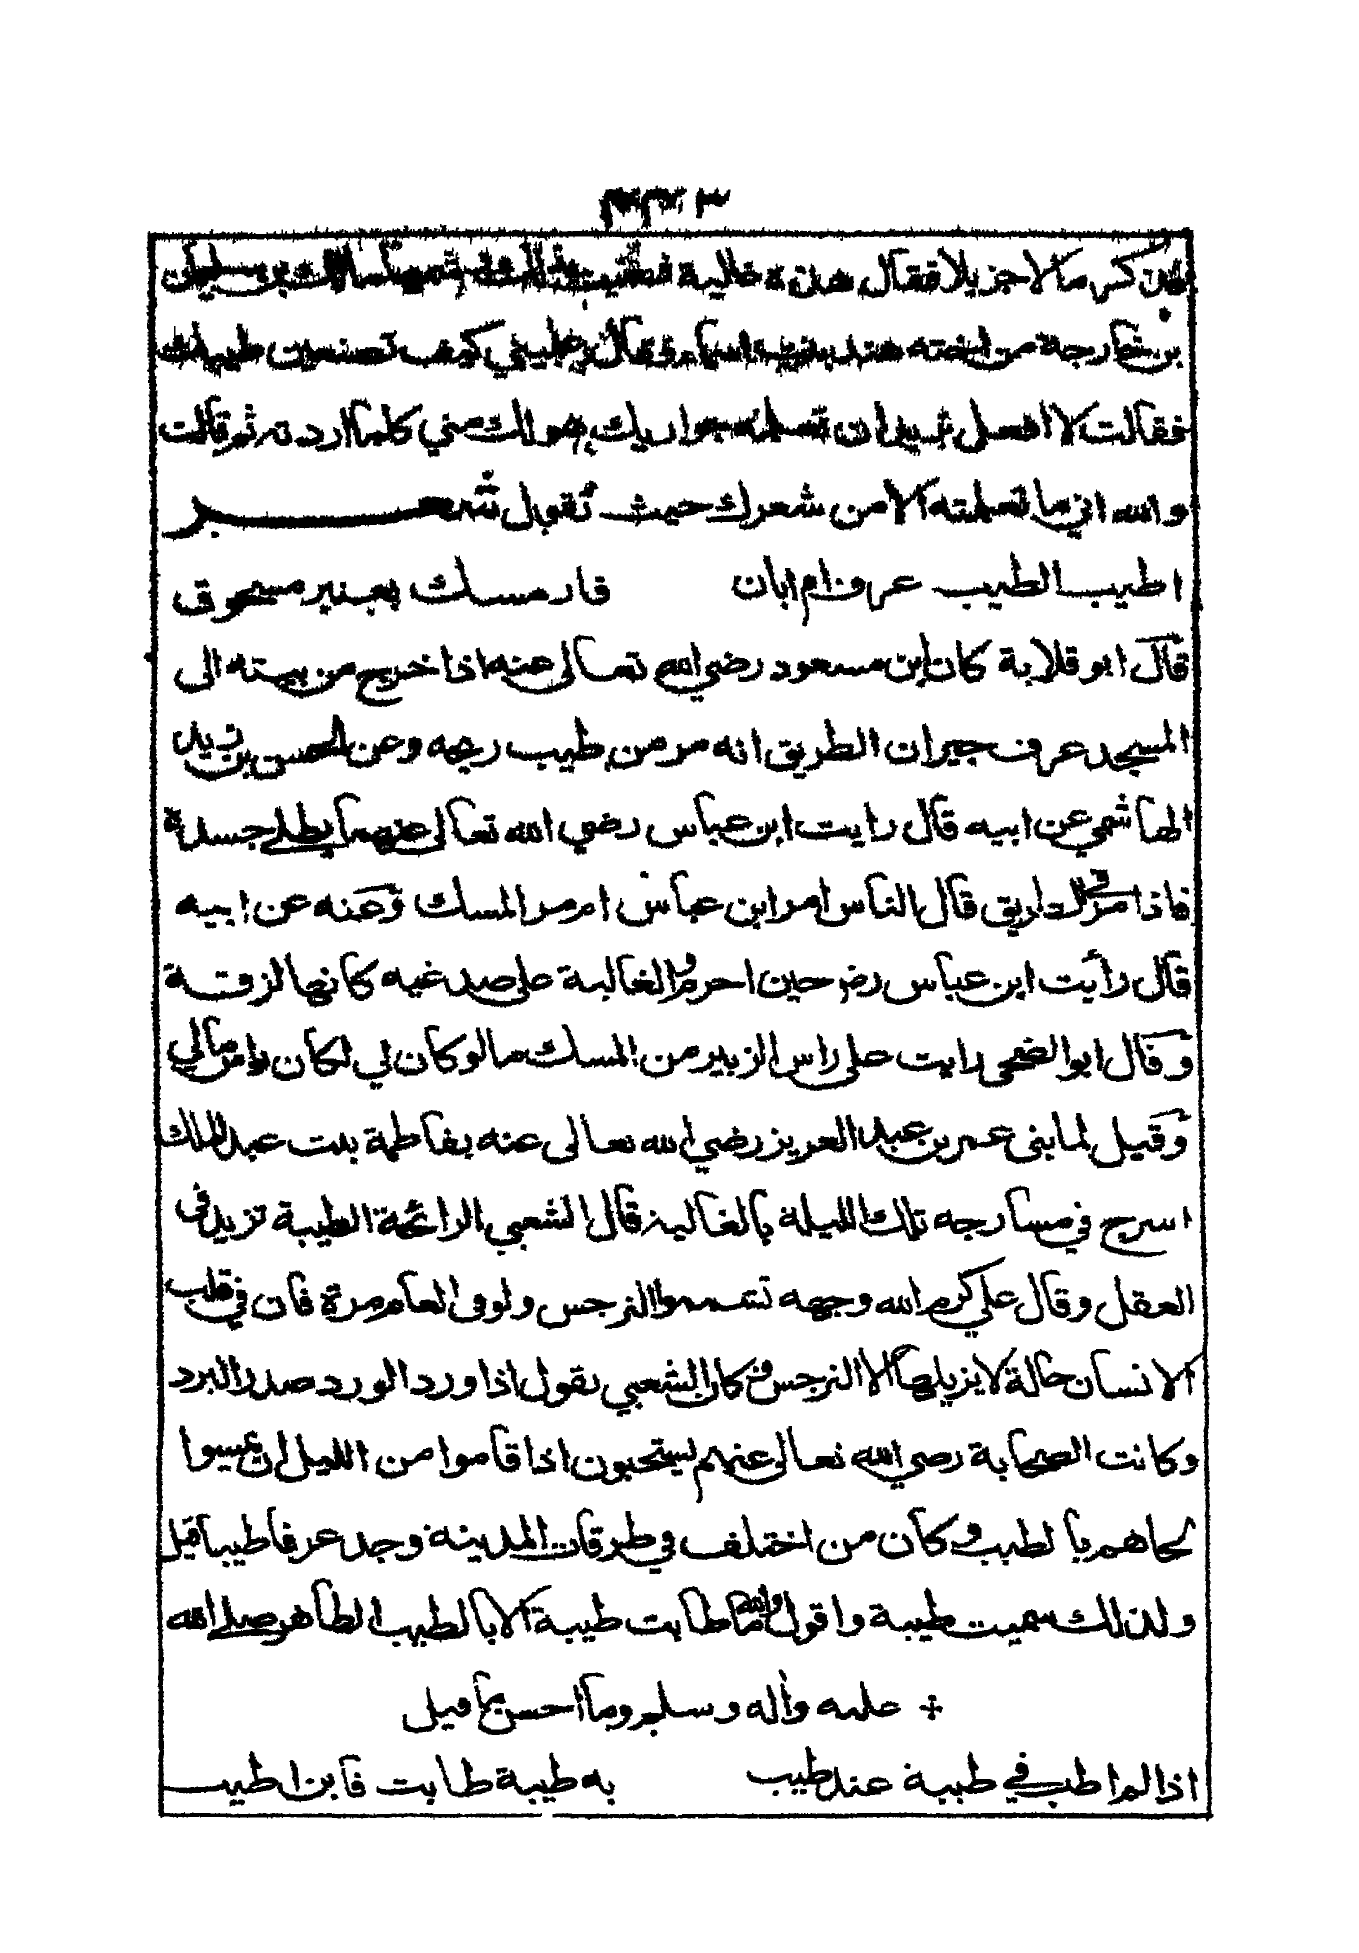 فذكر مالا جزيلا فقال هذه غالية فسميت بذلك وشمها مالك بن سليمان
بن خارجة من اخته هند بنت اسماء فقال علميني كيف تصنعين طيبك
فقالت لا افعل تريد ان تعلمه جواريك هو لك مني كلما اردته ثم قالت
والله اني ما تعلمته الا من شعرك حيث تقول شعر
اطيب الطيب عرف ام ابان فار مسك بعنبر مسحوق
قال ابو قلابة كان ابن مسعود رضي الله تعالى عنه اذا خرج من بيته الى
المسجد عرف جيران الطريق انه مر من طيب رجه وعن الحسن بن زيد
الهاشمي عن ابيه قال رايت ابن عباس رضي الله تعالى عنهما يطلي جسده
فاذا مر في الطريق قال الناس امر ابن عباس ام مر المسك وعنه عن ابيه
قال رأيت ابن عباس رضي حين احرم والغالية على صدغيه كانها لزوقة
وقال ابو الضحى رايت على راس الزبير من المسك ما لو كان لي لكان راس مالي
وقيل لما بنى عمر بن عبد العزيز رضي الله تعالى عنه بفاطمة بنت عبد الملك
اسرج في مسارجه تلك الليلة بالغالية قال الشعبي الرائحة الطيبة تزيد في
العقل وقال علي كرم الله وجهه تشمموا النرجس ولو في العام مرة فان في قلب
الانسان حالة لا يزيلها الا النرجس وكان الشعبي يقول اذا ورد الورد صدر البرد
وكانت الصحابة رضي الله تعالى عنهم يستحبون اذا قاموا من الليل ان يمسوا
لحاهم بالطيب وكان من اختلف في طرقات المدينة وجد عرفا طيبا قيل
ولذلك سميت طيبة واقول والله ما طابت طيبة الا بالطيب الطاهر صلى الله
عليه واله وسلم وما احسن ما قيل
اذا لم اطب في طيبة عند طيب به طيبة طابت فاين اطيب